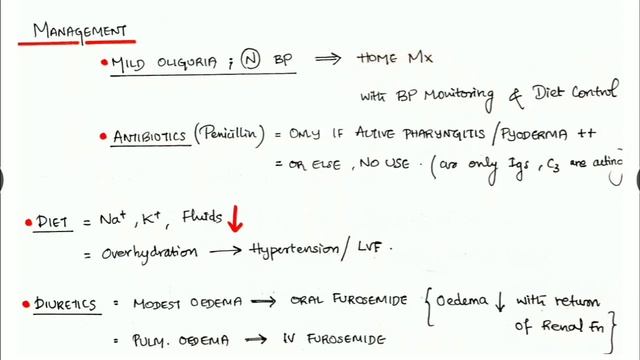 MANAGEMENT
• MILD OLIGURIA ; Ⓝ BP ⟹ HOME Mx
with BP Monitoring & Diet Control
• ANTIBIOTICS (Penicillin) = ONLY IF ACTIVE PHARYNGITIS / PYODERMA ++
= OR ELSE, NO USE. (as only Igs, C3 are acting)
• DIET = Na+, K+, Fluids ↓
= Overhydration → Hypertension / LVF.
• DIURETICS = MODEST OEDEMA → ORAL FUROSEMIDE { Oedema ↓ with return
of Renal Fn }
= PULM. OEDEMA → IV FUROSEMIDE